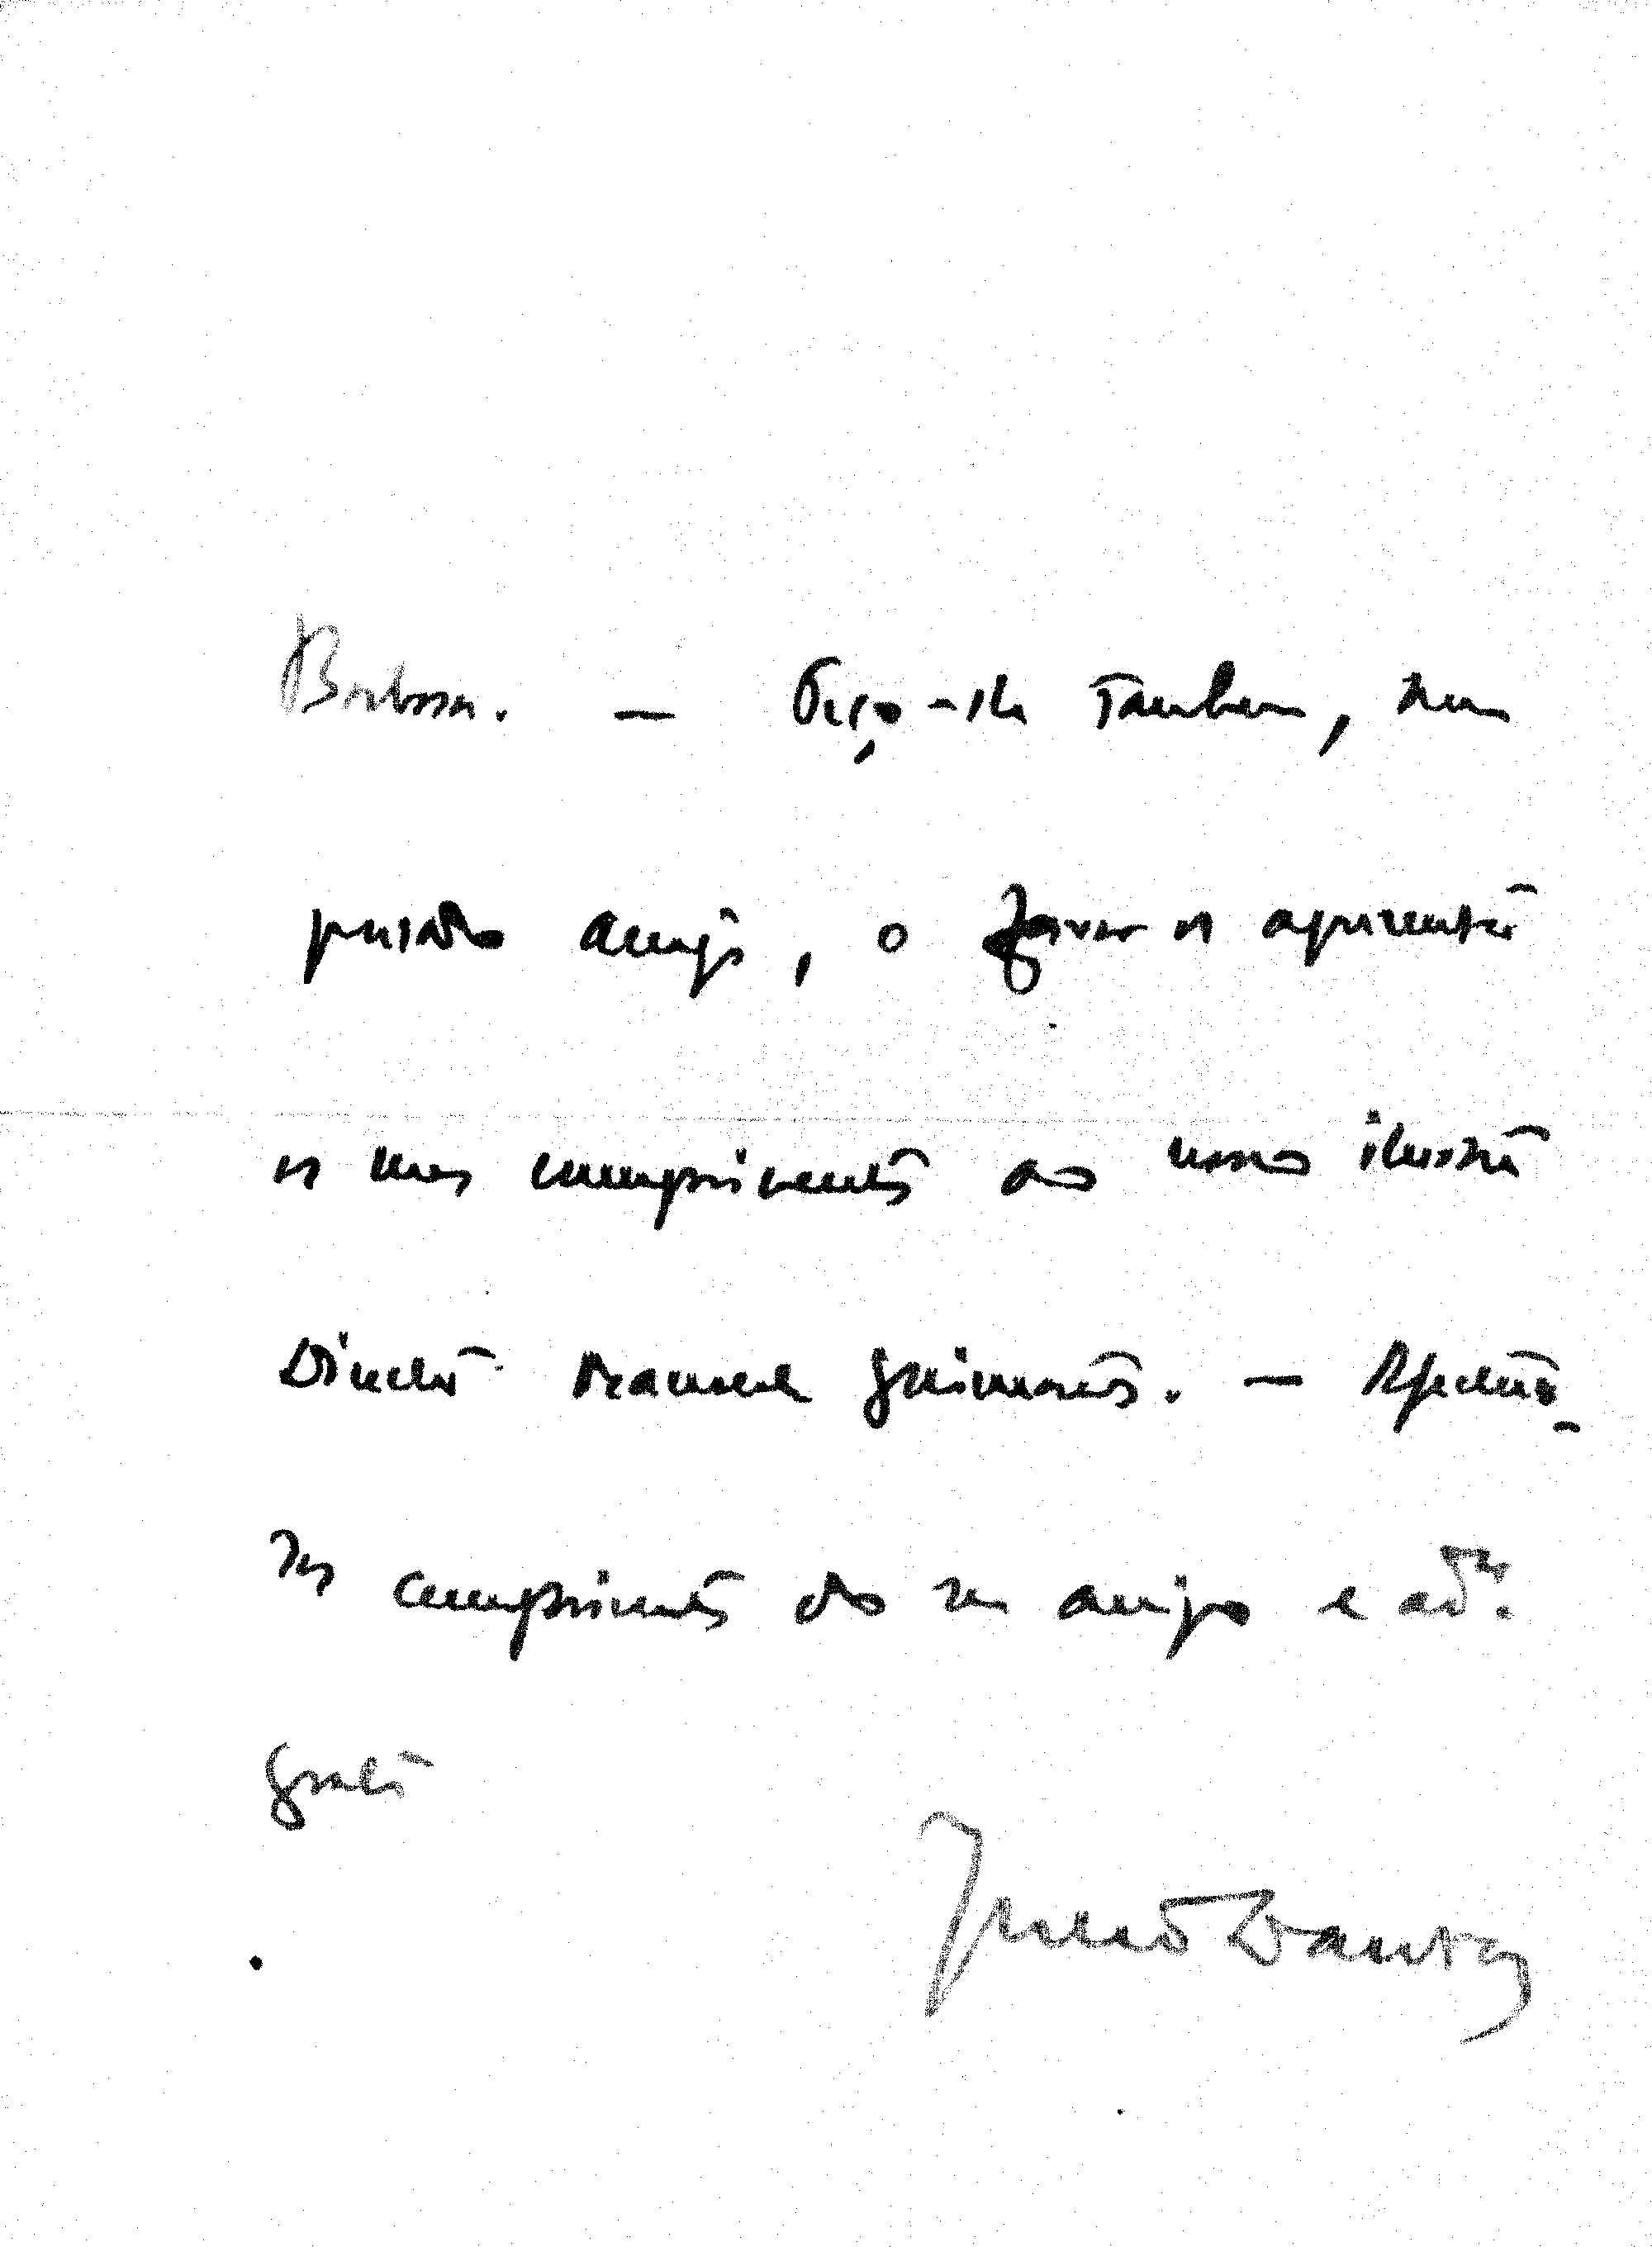 Barbosa. — Peço-lhe tambem, meu
presado amigo, o favor de apresentar
os meus cumprimentos ao nosso ilustre
Director Manuel Guimarães. — Afectuo-
sos cumprimentos do seu amigo e adm.ᵒʳ
grato
Julio Dantas